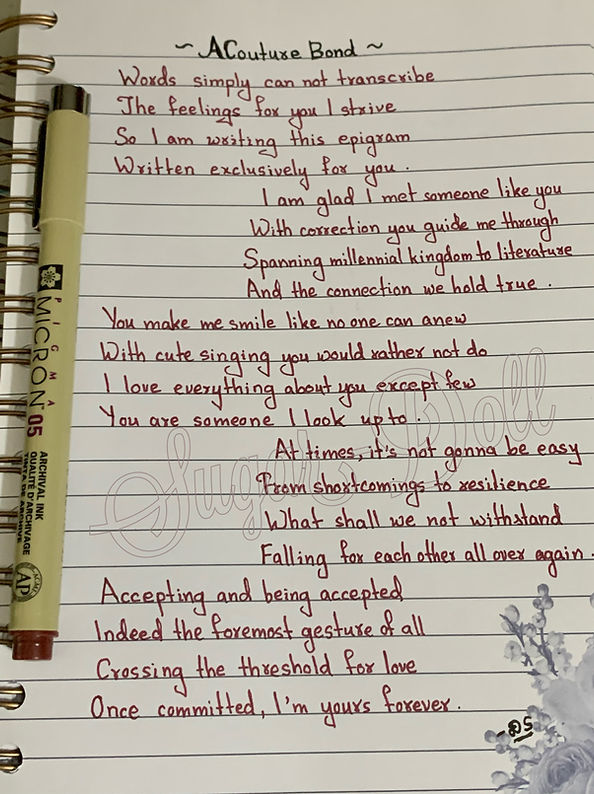 ~ A Couture Bond ~
Words simply can not transcribe
The feelings for you I strive
So I am writing this epigram
Written exclusively for you.
I am glad I met someone like you
With correction you guide me through
Spanning millennial kingdom to literature
And the connection we hold true.
You make me smile like no one can anew
With cute singing you would rather not do
I love everything about you except few
You are someone I look up to.
At times, it's not gonna be easy
From shortcomings to resilience
What shall we not withstand
Falling for each other all over again.
Accepting and being accepted
Indeed the foremost gesture of all
Crossing the threshold for love
Once committed, I'm yours forever.
Sugar Doll
PIGMA
MICRON 05
ARCHIVAL INK
QUALITÉ D'ARCHIVAGE
TINTA DE ARCHIVE
ACMI
AP